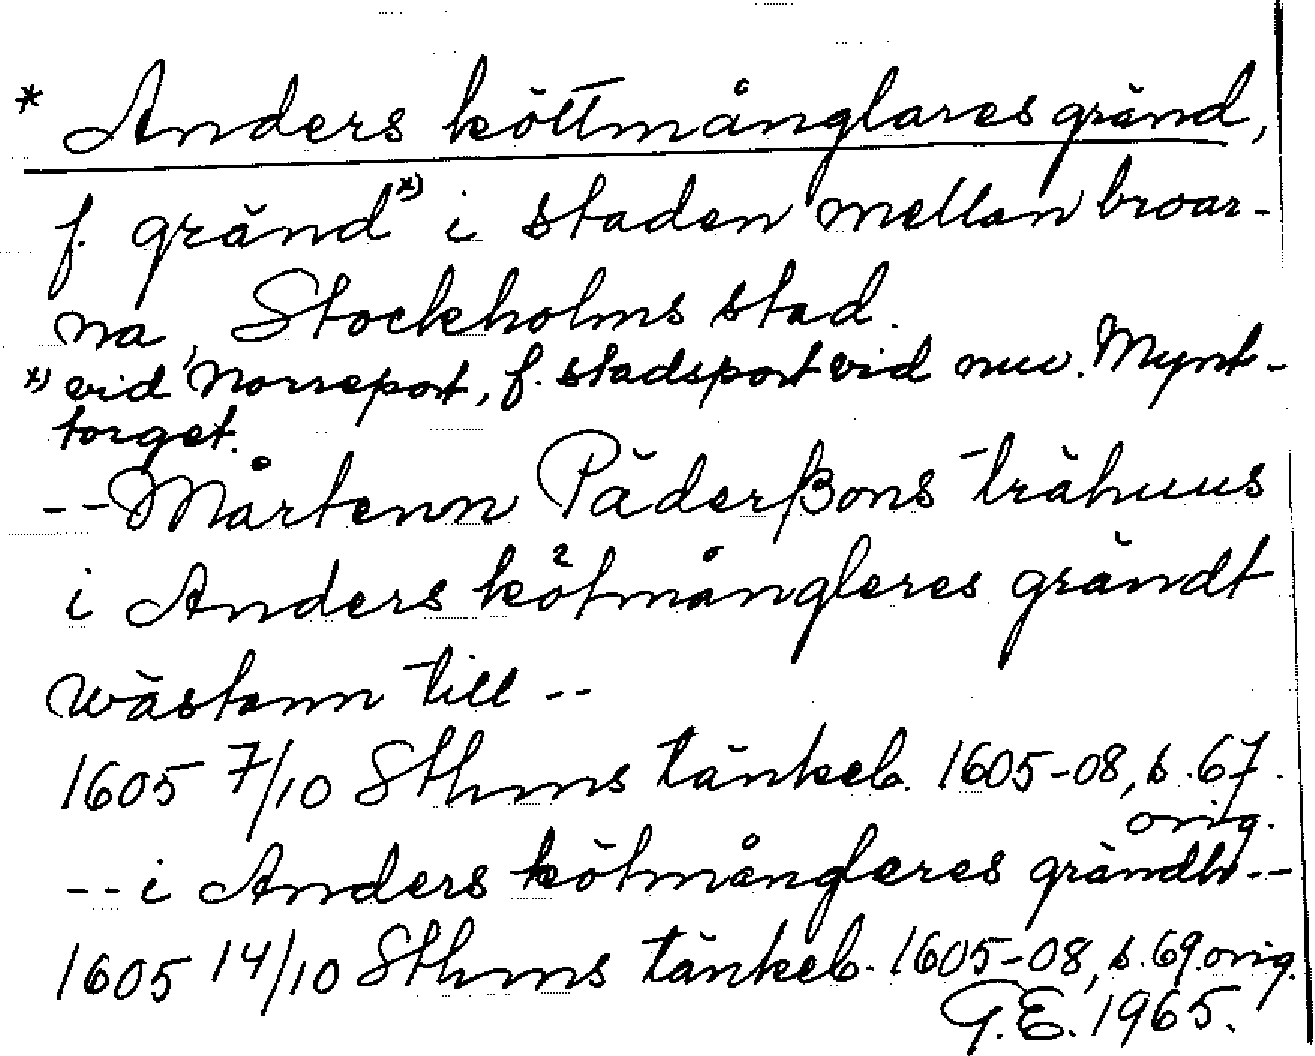 * Anders köttmånglares gränd,
f. gränd x) i staden mellan broar-
na, Stockholms stad.
x) vid Norreport, f. stadsport vid nuv. Mynt-
torget.
-- Mårtenn Päderßons trähuus
i Anders kötmångleres grändt
wästenn till --
1605 7/10 Sthms tänkeb. 1605-08, s. 67
orig.
-- i Anders kötmångleres grändh --
1605 14/10 Sthms tänkeb. 1605-08, s. 69. orig.
G.E. 1965.